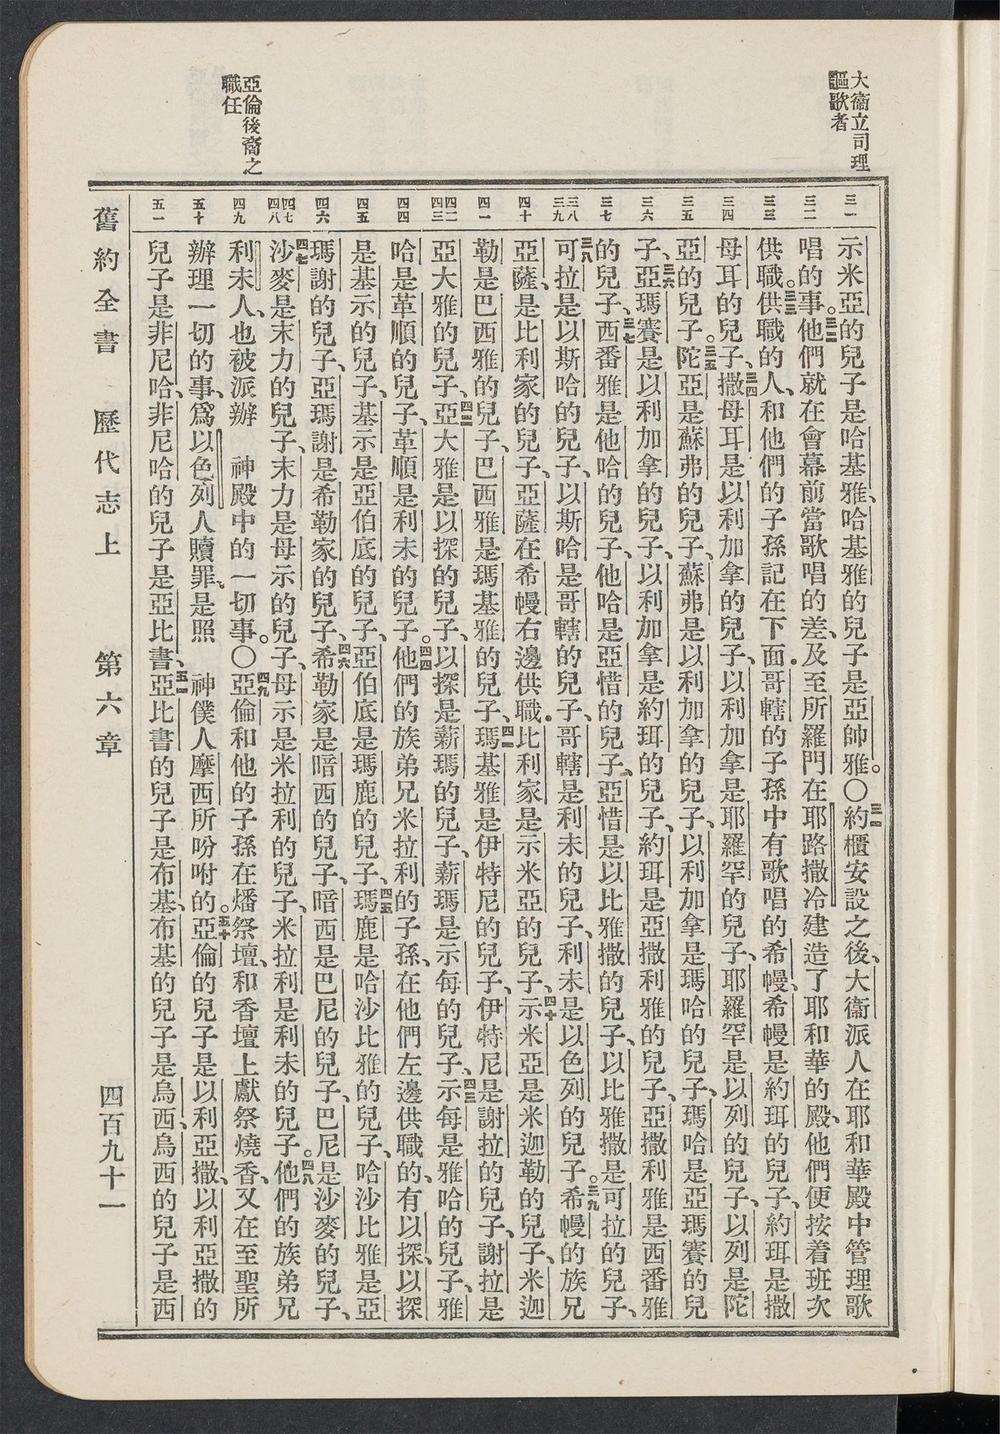 大衞立司理
謳歌者
亞倫後裔之
職任
三一
示米亞的兒子是哈基雅、哈基雅的兒子是亞帥雅。〇三一約櫃安設之後、大衞派人在耶和華殿中管理歌
三二
唱的事。三二他們就在會幕前當歌唱的差、及至所羅門在耶路撒冷建造了耶和華的殿、他們便按着班次
三三
供職。三三供職的人、和他們的子孫記在下面.哥轄的子孫中有歌唱的希幔、希幔是約珥的兒子、約珥是撒
三四
母耳的兒子、三四撒母耳是以利加拿的兒子、以利加拿是耶羅罕的兒子、耶羅罕是以列的兒子、以列是陀
三五
亞的兒子。三五陀亞是蘇弗的兒子、蘇弗是以利加拿的兒子、以利加拿是瑪哈的兒子、瑪哈是亞瑪賽的兒
三六
子、三六亞瑪賽是以利加拿的兒子、以利加拿是約珥的兒子、約珥是亞撒利雅的兒子、亞撒利雅是西番雅
三七
的兒子、三七西番雅是他哈的兒子、他哈是亞惜的兒子、亞惜是以比雅撒的兒子、以比雅撒是可拉的兒子、
三八 三九
三八可拉是以斯哈的兒子、以斯哈是哥轄的兒子、哥轄是利未的兒子、利未是以色列的兒子。三九希幔的族兄
四十
亞薩、是比利家的兒子、亞薩在希幔右邊供職.比利家是示米亞的兒子、四十示米亞是米迦勒的兒子、米迦
四一
勒是巴西雅的兒子、巴西雅是瑪基雅的兒子、四一瑪基雅是伊特尼的兒子、伊特尼是謝拉的兒子、謝拉是
四二 四三
亞大雅的兒子、四二亞大雅是以探的兒子、以探是薪瑪的兒子、薪瑪是示每的兒子、四三示每是雅哈的兒子、雅
四四
哈是革順的兒子、革順是利未的兒子。四四他們的族弟兄米拉利的子孫、在他們左邊供職的、有以探、以探
四五
是基示的兒子、基示是亞伯底的兒子、亞伯底是瑪鹿的兒子、四五瑪鹿是哈沙比雅的兒子、哈沙比雅是亞
四六
瑪謝的兒子、亞瑪謝是希勒家的兒子、四六希勒家是暗西的兒子、暗西是巴尼的兒子、巴尼是沙麥的兒子、
四七 四八
四七沙麥是末力的兒子、末力是母示的兒子、母示是米拉利的兒子、米拉利是利未的兒子。四八他們的族弟兄
四九
利未人、也被派辦 神殿中的一切事。〇四九亞倫和他的子孫在燔祭壇、和香壇上獻祭燒香、又在至聖所
五十
辦理一切的事、爲以色列人贖罪、是照 神僕人摩西所吩咐的。五十亞倫的兒子是以利亞撒、以利亞撒的
五一
兒子是非尼哈、非尼哈的兒子是亞比書、五一亞比書的兒子是布基、布基的兒子是烏西、烏西的兒子是西
舊約全書 歷代志上 第六章 四百九十一